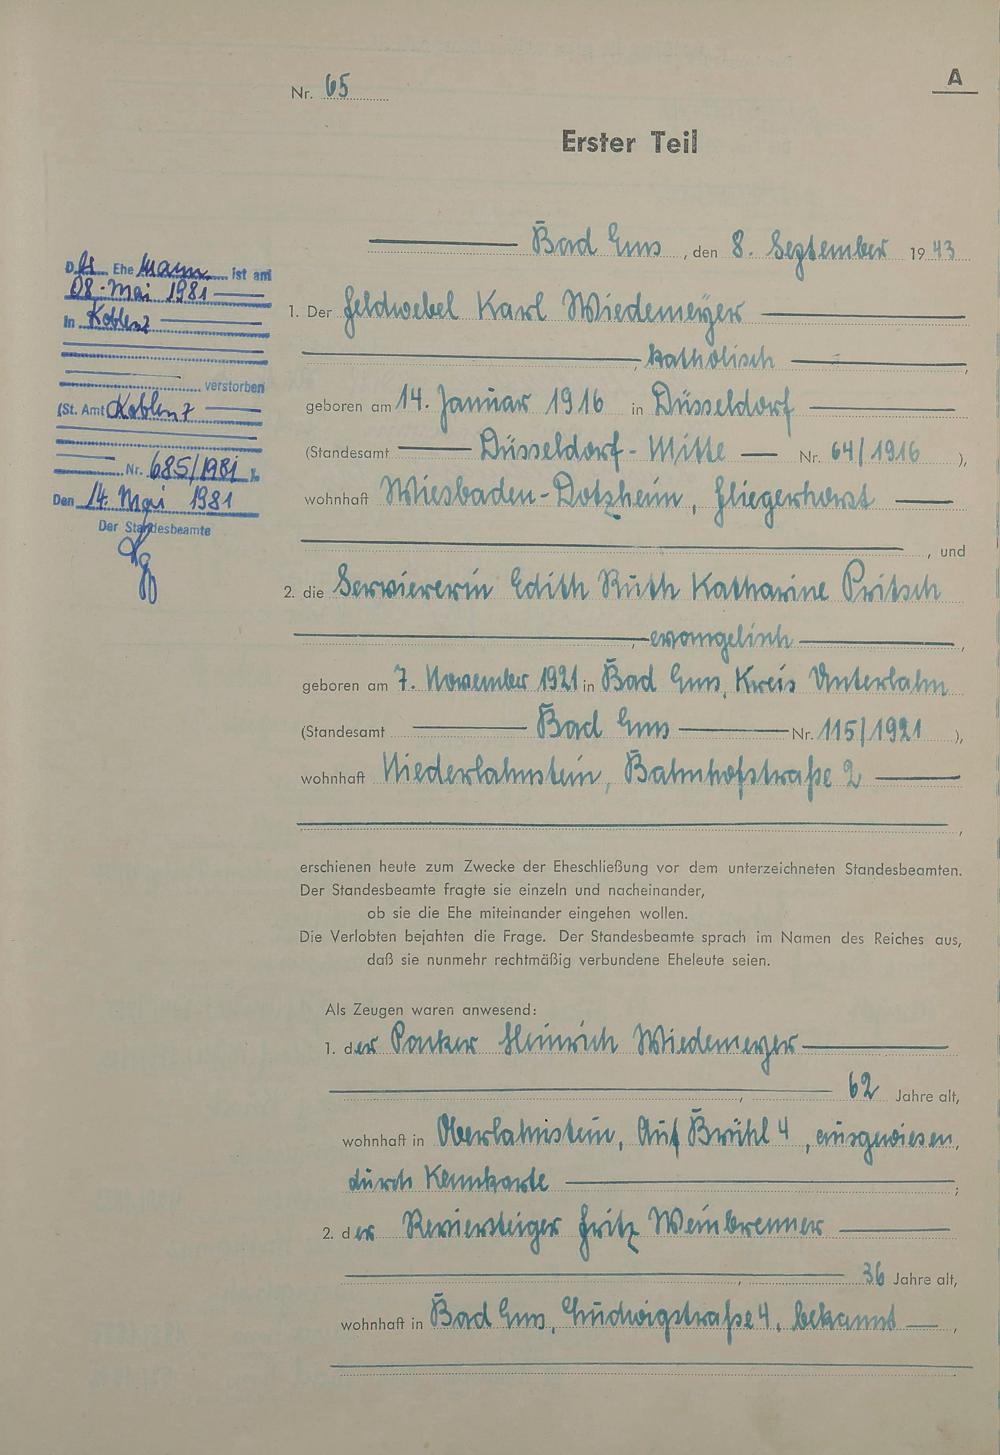 A
Nr. 65
Erster Teil
Bad Ems, den 8. September 1943
1. Der Feldwebel Karl Wiedemeyer
, katholisch,
geboren am 14. Januar 1916 in Düsseldorf
(Standesamt Düsseldorf-Mitte Nr. 64/1916),
wohnhaft Wiesbaden-Dotzheim, Fliegerhorst
, und
2. die Serviererin Edith Ruth Katharine Pritsch
, evangelisch,
geboren am 7. November 1921 in Bad Ems, Kreis Unterlahn
(Standesamt Bad Ems Nr. 115/1921),
wohnhaft Niederlahnstein, Bahnhofstraße 2
,
erschienen heute zum Zwecke der Eheschließung vor dem unterzeichneten Standesbeamten.
Der Standesbeamte fragte sie einzeln und nacheinander,
ob sie die Ehe miteinander eingehen wollen.
Die Verlobten bejahten die Frage. Der Standesbeamte sprach im Namen des Reiches aus,
daß sie nunmehr rechtmäßig verbundene Eheleute seien.
Als Zeugen waren anwesend:
1. der Heinrich Wiedemeyer
, 62 Jahre alt,
wohnhaft in Oberlahnstein, Auf Brühl 4, ausgewiesen
durch Kennkarte;
2. der Reviersteiger Fritz Weinbrenner
, 36 Jahre alt,
wohnhaft in Bad Ems, Ludwigstraße 4, bekannt,
Der Ehemann ist am
08. Mai 1981
in Koblenz
verstorben
(St. Amt Koblenz
Nr. 685/1981).
Den 14. Mai 1981
Der Standesbeamte